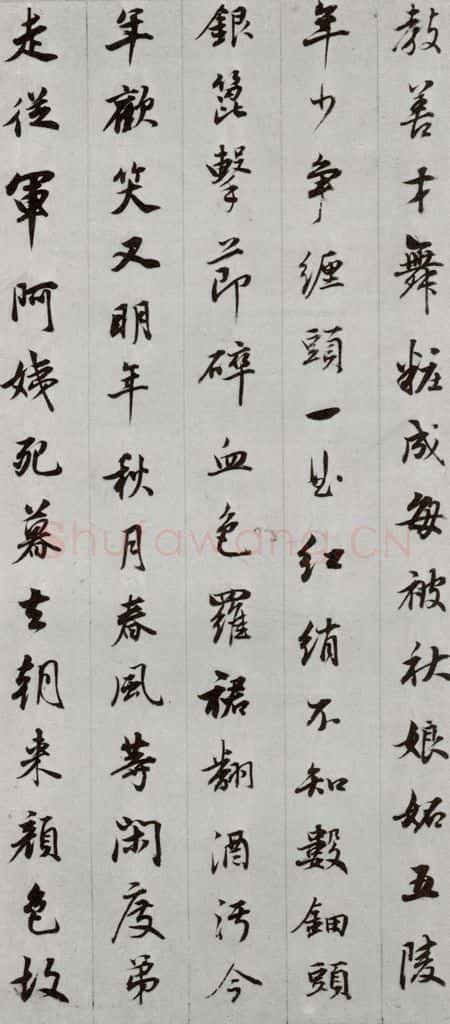 教善才舞粧成每被秋娘妬五陵
年少爭纏頭一曲紅綃不知數鈿頭
銀篦擊節碎血色羅裙翻酒污今
年歡笑又明年秋月春風等閑度弟
走從軍阿姨死暮去朝来顏色故
Shufawang.CN